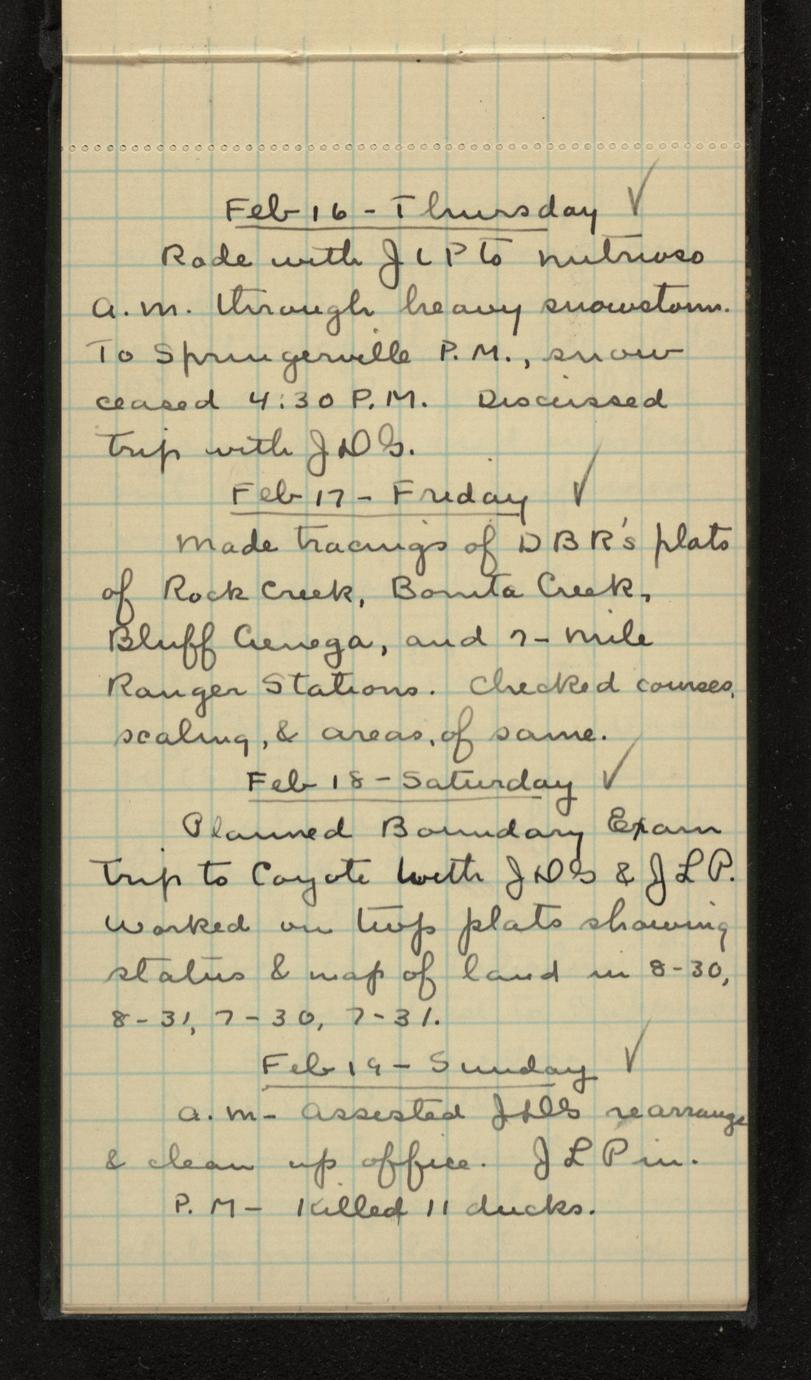 Feb 16 - Thursday ✓
Rode with J L P to nutrioso
a.m. through heavy snowstorm.
To Springerville P.M., snow
ceased 4:30 P.M. Discussed
trip with JDG.
Feb 17 - Friday ✓
made tracings of D B R's plats
of Rock Creek, Bonita Creek,
Bluff Cienega, and 7-mile
Ranger Stations. Checked courses,
scaling, & areas, of same.
Feb 18 - Saturday ✓
Planned Boundary Exam
trip to Coyote with JDG & J L P.
Worked on twp plats showing
status & map of land in 8-30,
8-31, 7-30, 7-31.
Feb 19 - Sunday ✓
a.m- assisted JDG rearrange
& clean up office. J L P in.
P.M- Killed 11 ducks.